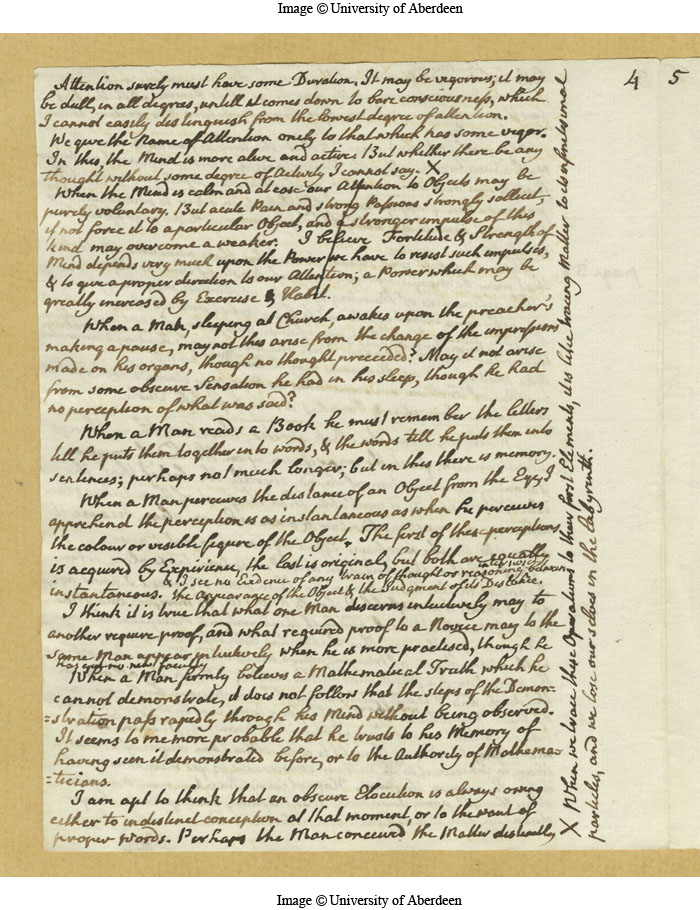 Image © University of Aberdeen
4 5
Attention surely must have some Duration. It may be vigorous; it may
be dull, in all degrees, untill it comes down to bare consciousness, which
I cannot easily distinguish from the lowest degree of attention.
We give the Name of Attention onely to that which has some vigor.
In this, the Mind is more alive and active. But whether there be any
thought without some degree of Activity I cannot say. X
When the Mind is calm and at ease our Attention to Objects may be
purely voluntary. But acute Pain and strong Passions strongly sollicit,
if not force it to a particular Object, and a stronger impulse of this
kind may overcome a weaker. I believe Fortitude & Strength of
Mind depends very much upon the Power we have to resist such impulses,
& to give a proper direction to our Attention; a Power which may be
greatly increased by Exercise & Habit.
When a Man, sleeping at Church, awakes upon the preacher's
making a pause, may not this arise from the change of the impressions
made on his organs, though no thought preceeded? May it not arise
from some obscure Sensation he had in his sleep, though he had
no perception of what was said?
When a Man reads a Book he must remember the letters
till he puts them together into words, & the words till he puts them into
sentences; perhaps not much longer; but in this there is memory.
When a Man perceives the distance of an Object from the Eye, I
apprehend the perception is as instantaneous as when he perceives
the colour or visible figure of the Object. The first of these perceptions
is acquired by Expirience, the last is original, but both are equally
instantaneous. & I see no Evidence of any train of thought or reasoning interposed between
the Appearance of the Object & the Judgment of its Distance.
I think it is true that what one Man discerns intuitively may to
another require proof, and what required proof to a Novice may to the
same Man appear intuitively when he is more practised, though he
has got no new faculty
When a Man firmly believes a Mathematical Truth which he
cannot demonstrate, it does not follow that the steps of the Demon-
=stration pass rapidly through his Mind without being observed.
It seems to me more probable that he trusts to his Memory of
having seen it demonstrated before, or to the Authority of Mathema-
=ticians.
I am apt to think that an obscure Elocution is always owing
either to indistinct conception at that moment, or to the want of
proper words. Perhaps the Man conceived the Matter distinctly
X When we trace these Operations to their first Elements, it is like tracing Matter to its infinitesimal
particles, and we lose our selves in the labyrinth.
Image © University of Aberdeen